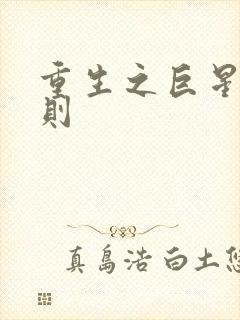 重生之巨星
則
真島浩 白土悠